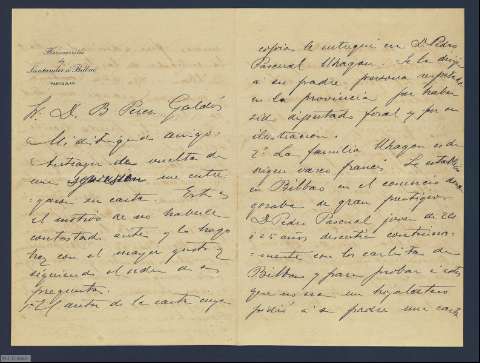 Ferrocarriles
de
Santander a Bilbao
PARTICULAR
Sr. D. B Perez Galdós
Mi distinguido amigo:
Anteayer de vuelta de
una me entre-
garon su carta Este es
el motivo de no haberle
contestado antes y lo hago
hoy con el mayor gusto y
siguiendo el orden de sus
preguntas.
1º El autor de la carta cuya
copia le entregué es D. Pedro
Pascual Uhagon. Se la dirige
a su padre, persona respetada
en la provincia por haber
sido diputado foral y por su
ilustracion.
2º La familia Uhagon es de
origen vasco frances. Se estableció
en Bilbao en el comercio donde
gozaba de gran prestigio.
D. Pedro Pascual joven de 24
ó 25 años discutia continua-
mente con los carlistas de
Bilbao y para probar a estos
que no era un hojalatero
pidió a su padre una carta